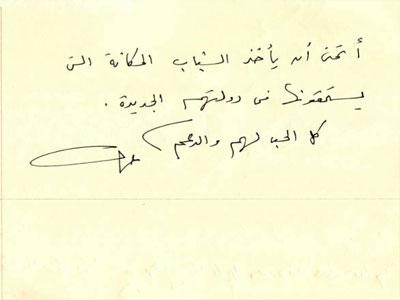 أتمنى أن يأخذ الشباب المكانة التي
يستحقونها في دولتهم الجديدة .
كل الحب لهم والدعم